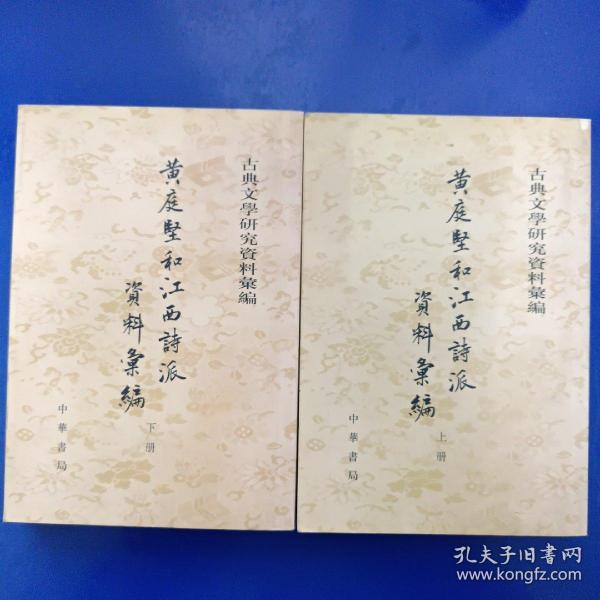 古典文學研究資料彙編
黄庭堅和江西詩派
資料彙編
下册
中華書局
古典文學研究資料彙編
黄庭堅和江西詩派
資料彙編
上册
中華書局
孔夫子旧书网
www.kongfz.com